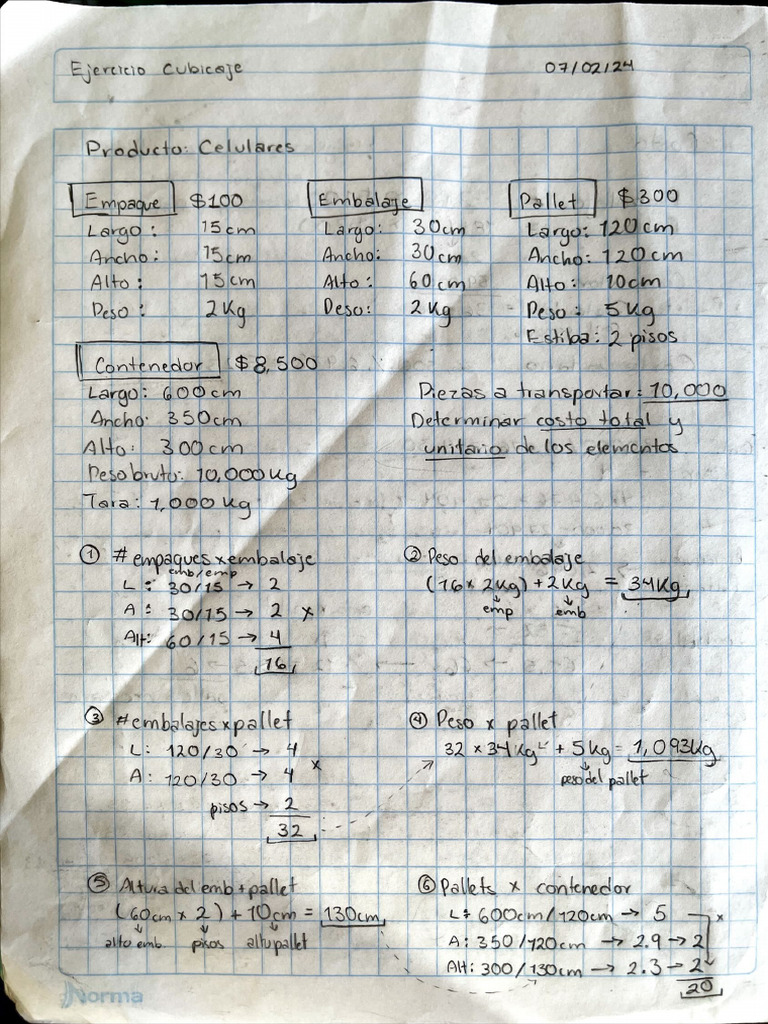 Ejercicio Cubicaje 07/02/24
Producto: Celulares
Empaque $100
Largo: 15cm
Ancho: 15cm
Alto: 15cm
Peso: 2Kg
Embalaje
Largo: 30cm
Ancho: 30cm
Alto: 60cm
Peso: 2Kg
Pallet $300
Largo: 120cm
Ancho: 120cm
Alto: 10cm
Peso: 5Kg
Estiba: 2 pisos
Contenedor $8,500
Largo: 600cm
Ancho: 350cm
Alto: 300cm
Peso bruto: 10,000Kg
Tara: 1,000Kg
Piezas a transportar: 10,000
Determinar costo total y
unitario de los elementos
① # empaques x embalaje
emb/emp
L: 30/15 → 2
A: 30/15 → 2 x
Alt: 60/15 → 4
16
② Peso del embalaje
(16 x 2Kg) + 2Kg = 34Kg
emp emb
③ # embalajes x pallet
L: 120/30 → 4
A: 120/30 → 4 x
pisos → 2
32
④ Peso x pallet
32 x 34Kg + 5Kg = 1,093Kg
peso del pallet
⑤ Altura del emb + pallet
(60cm x 2) + 10cm = 130cm
alto emb. pisos alto pallet
⑥ Pallets x contenedor
L: 600cm/120cm → 5 x
A: 350/120cm → 2.9 → 2
Alt: 300/130cm → 2.3 → 2
20
Norma